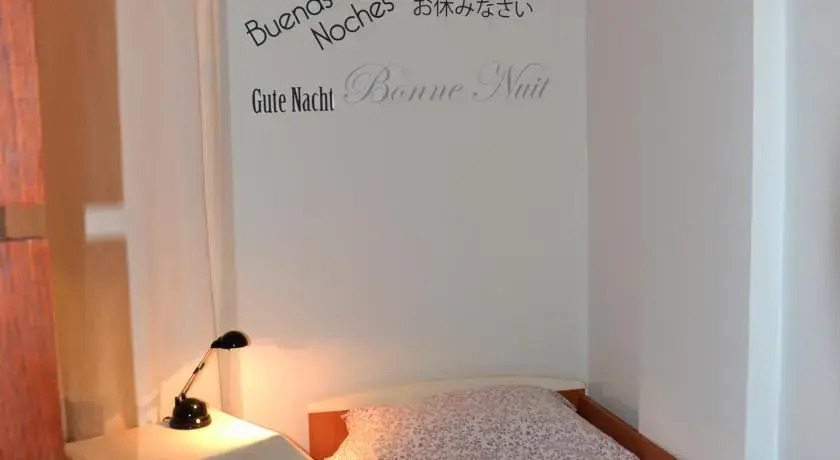 Buenas
Noches
お休みなさい
Gute Nacht
Bonne Nuit